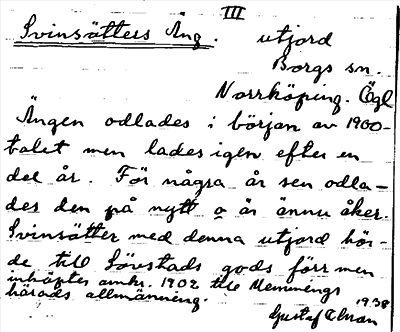 III
Svinsätters Äng. utjord
Borgs sn.
Norrköping. Ögl
Ängen odlades i början av 1900-
talet men lades igen efter en
del år. För några år sen odla-
des den på nytt o är ännu åker.
Svinsätter med denna utjord hör-
de till Löfstads gods förr men
inköptes omkr. 1902 till Memmings
härads allmänning. 1938
Gustaf